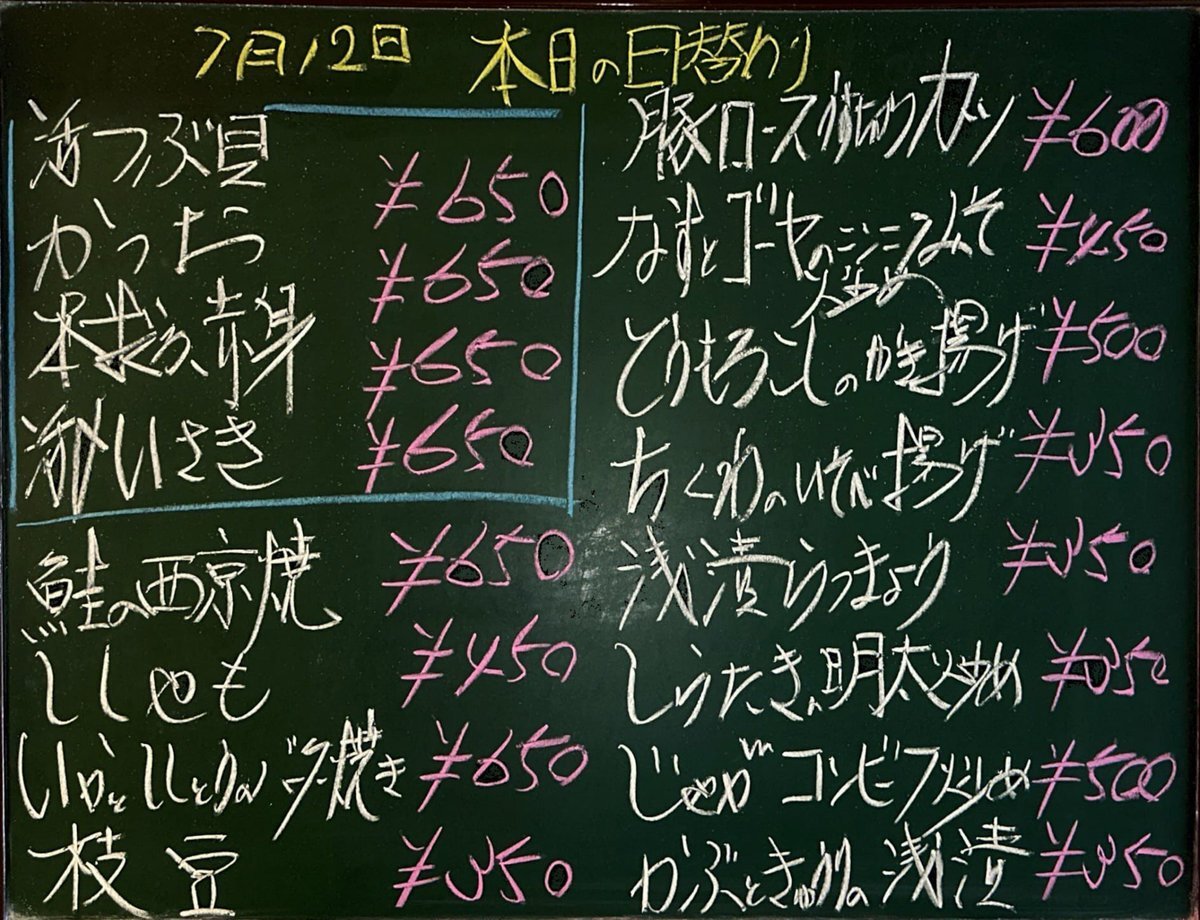 7月12日 本日の日替わり
活つぶ貝 ¥650
かつお ¥650
本まぐろ赤身 ¥650
活〆いさき ¥650
鮭の西京焼 ¥650
ししゃも ¥450
いかとししとうのバター焼き ¥650
枝豆 ¥350
豚ロース カツ ¥600
なすとゴーヤのニンニクみそ
炒め ¥450
とうもろこしのかき揚げ ¥500
ちくわのいそべ揚げ ¥350
浅漬らっきょう ¥350
しらたきの明太炒め ¥350
じゃがコンビーフ炒め ¥500
かぶときゅうりの浅漬 ¥350